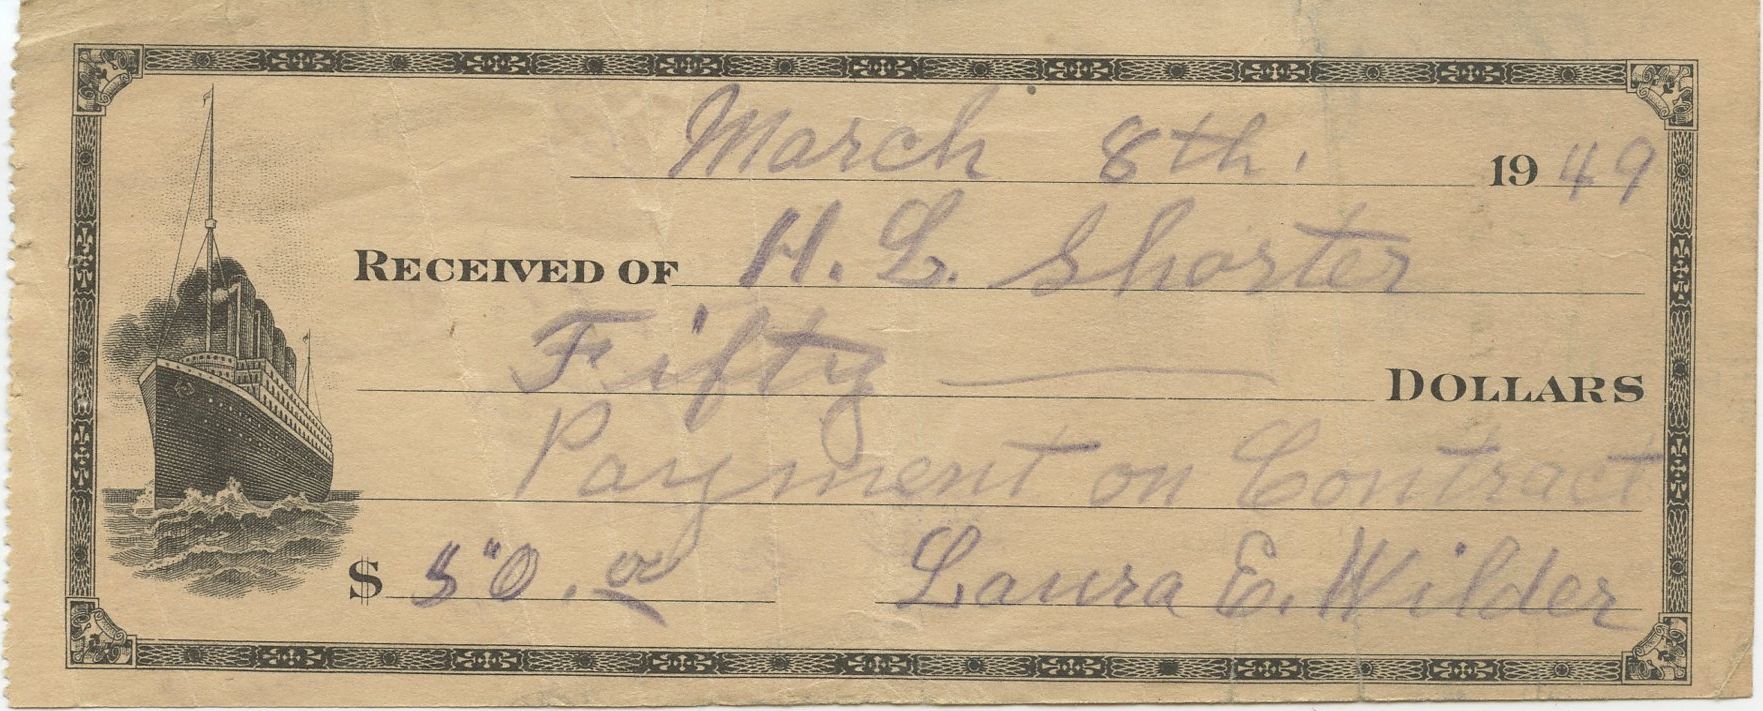 March 8th. 1949
RECEIVED OF H. L. Shorter
Fifty — DOLLARS
Payment on Contract
$ 50.00 Laura E. Wilder